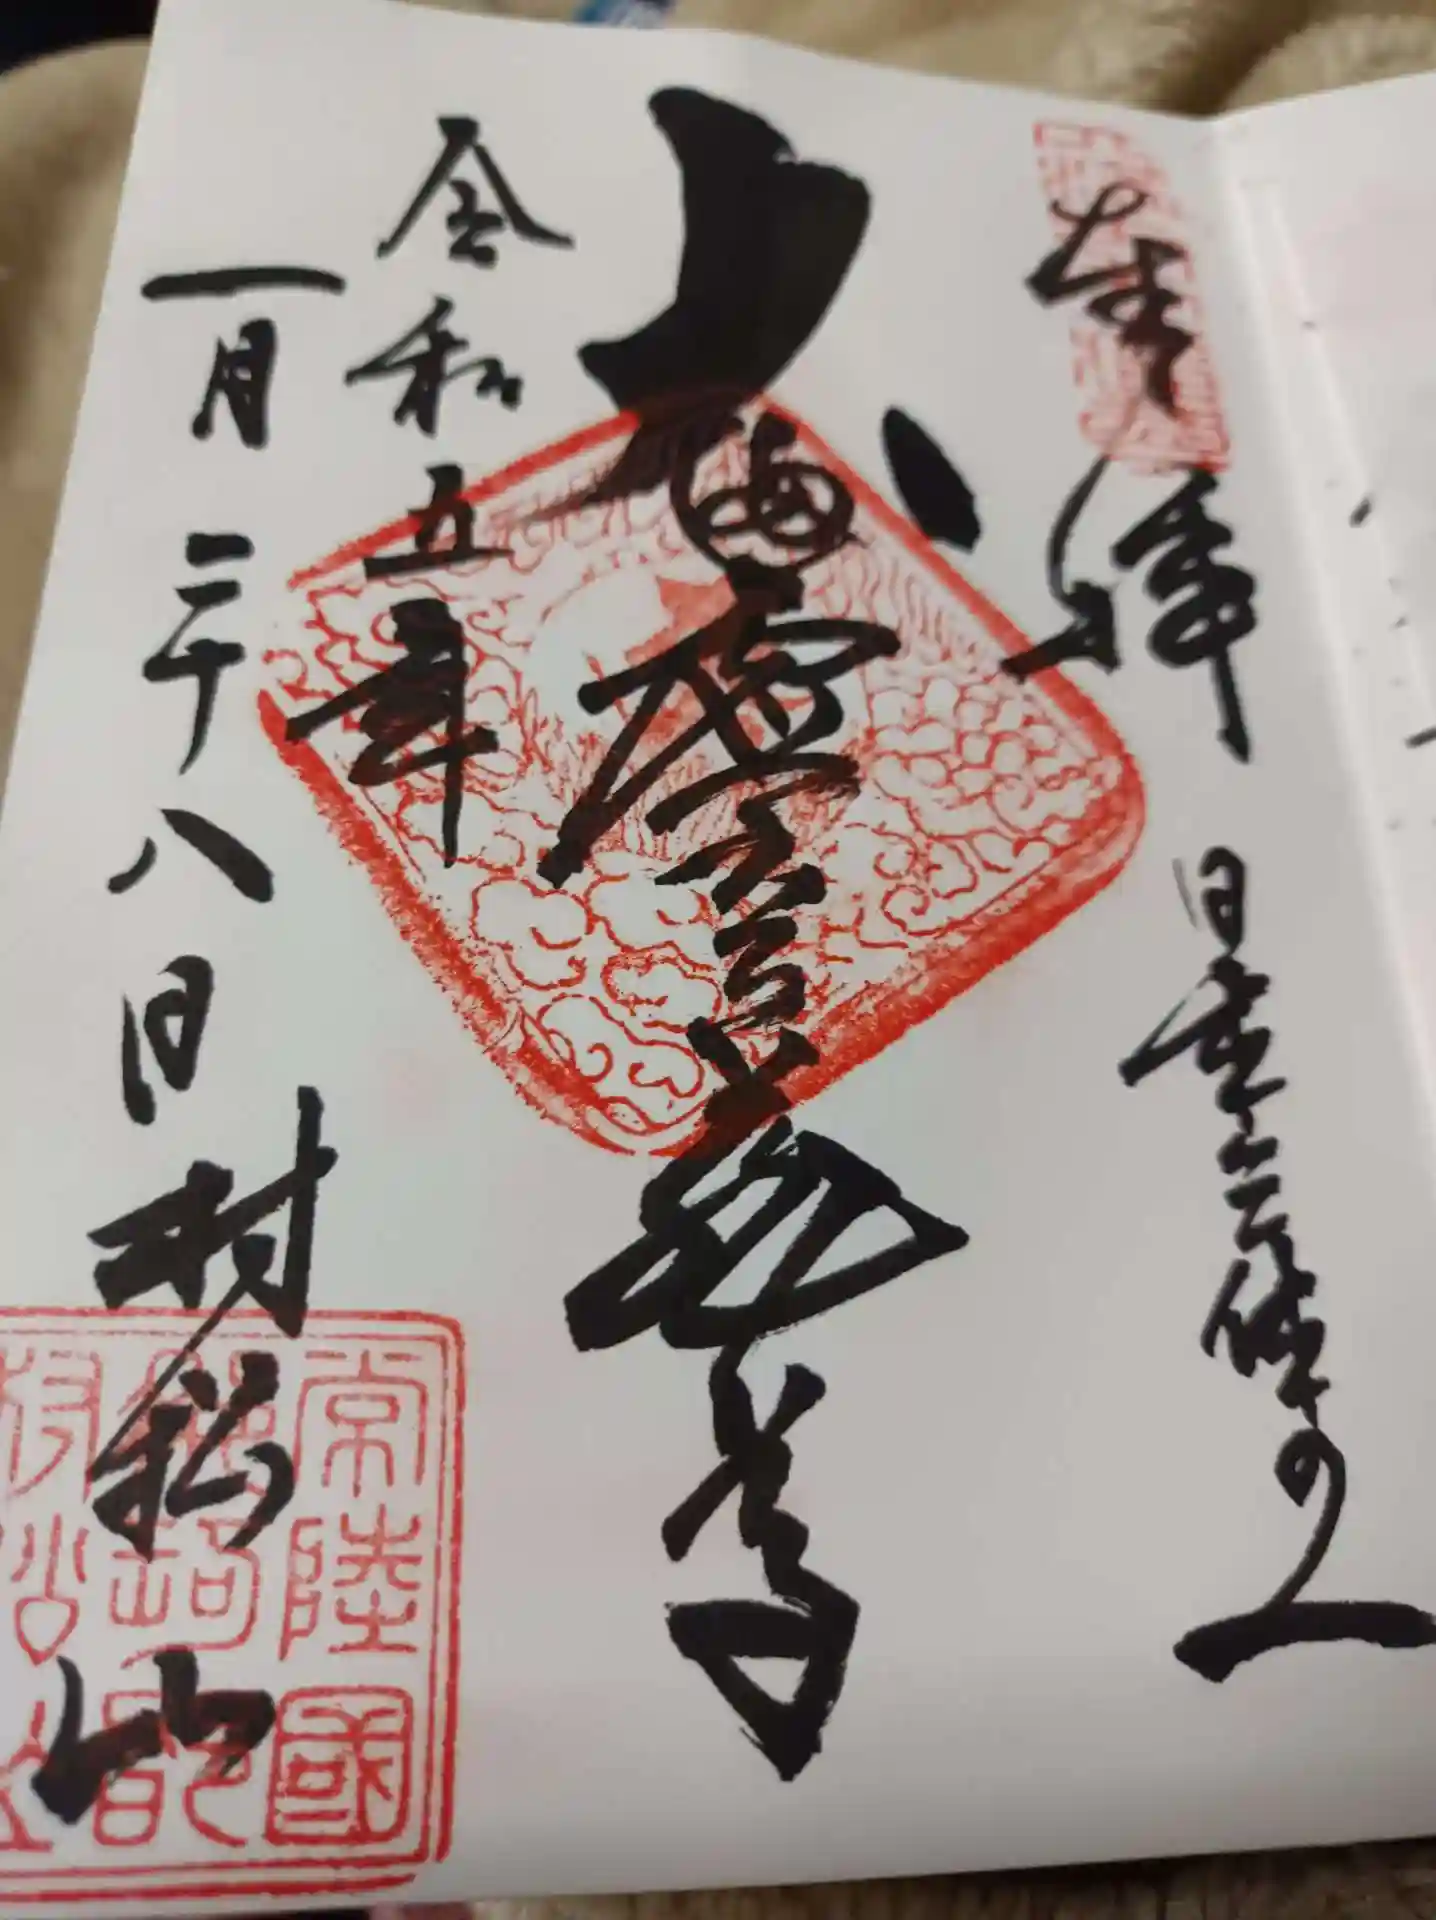 奉拝 日本三体の一
大満虚空蔵尊
令和五年
一月二十八日 村松山
常陸國
村松山